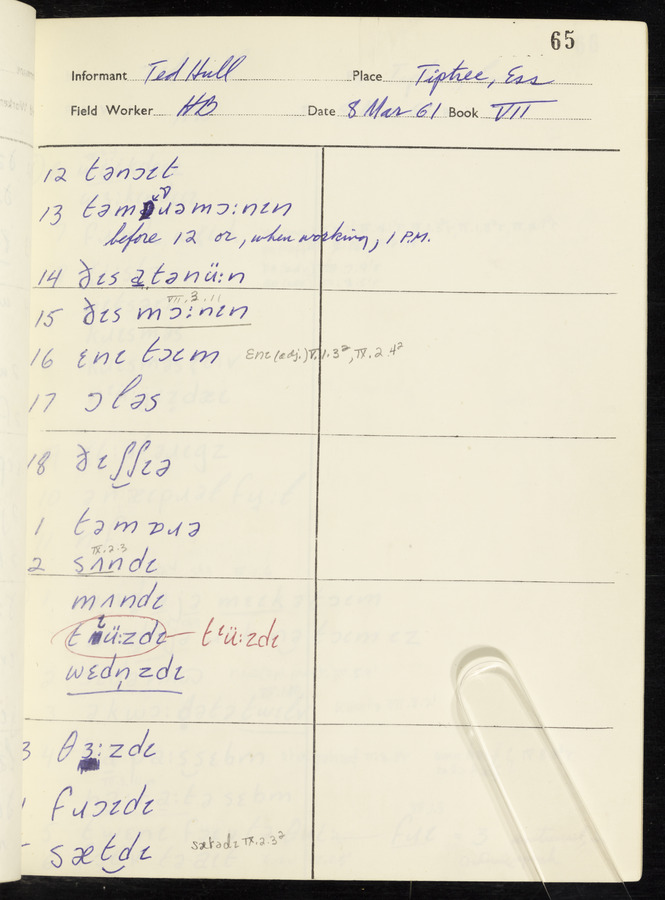 65
Informant Ted Hull Place Tiptree, Ess
Field Worker HB Date 8 Mar 61 Book VII
12 tənɔɪt
13 təmɒɹəmɔ:nɪn
before 12 or, when working, 1 P.M.
14 ðɪs ətənü:n
VII.3.11
15 ðɪs mɔ:nɪn
16 ɛnɪ tɔɪm ɛnɪ (adj.) V.1.3², IX.2.4²
17 ɔləs
18 ðɪʃʃɪə
1 təmɒɹə
IX.2.3
2 sʌndɪ
mʌndɪ
tᶤü:zdɪ — tᶤü:zdɪ
wɛdn̩zdɪ
3 θɜ:zdɪ
fɹɔɪdɪ
sætdɪ sætədɪ IX.2.3²